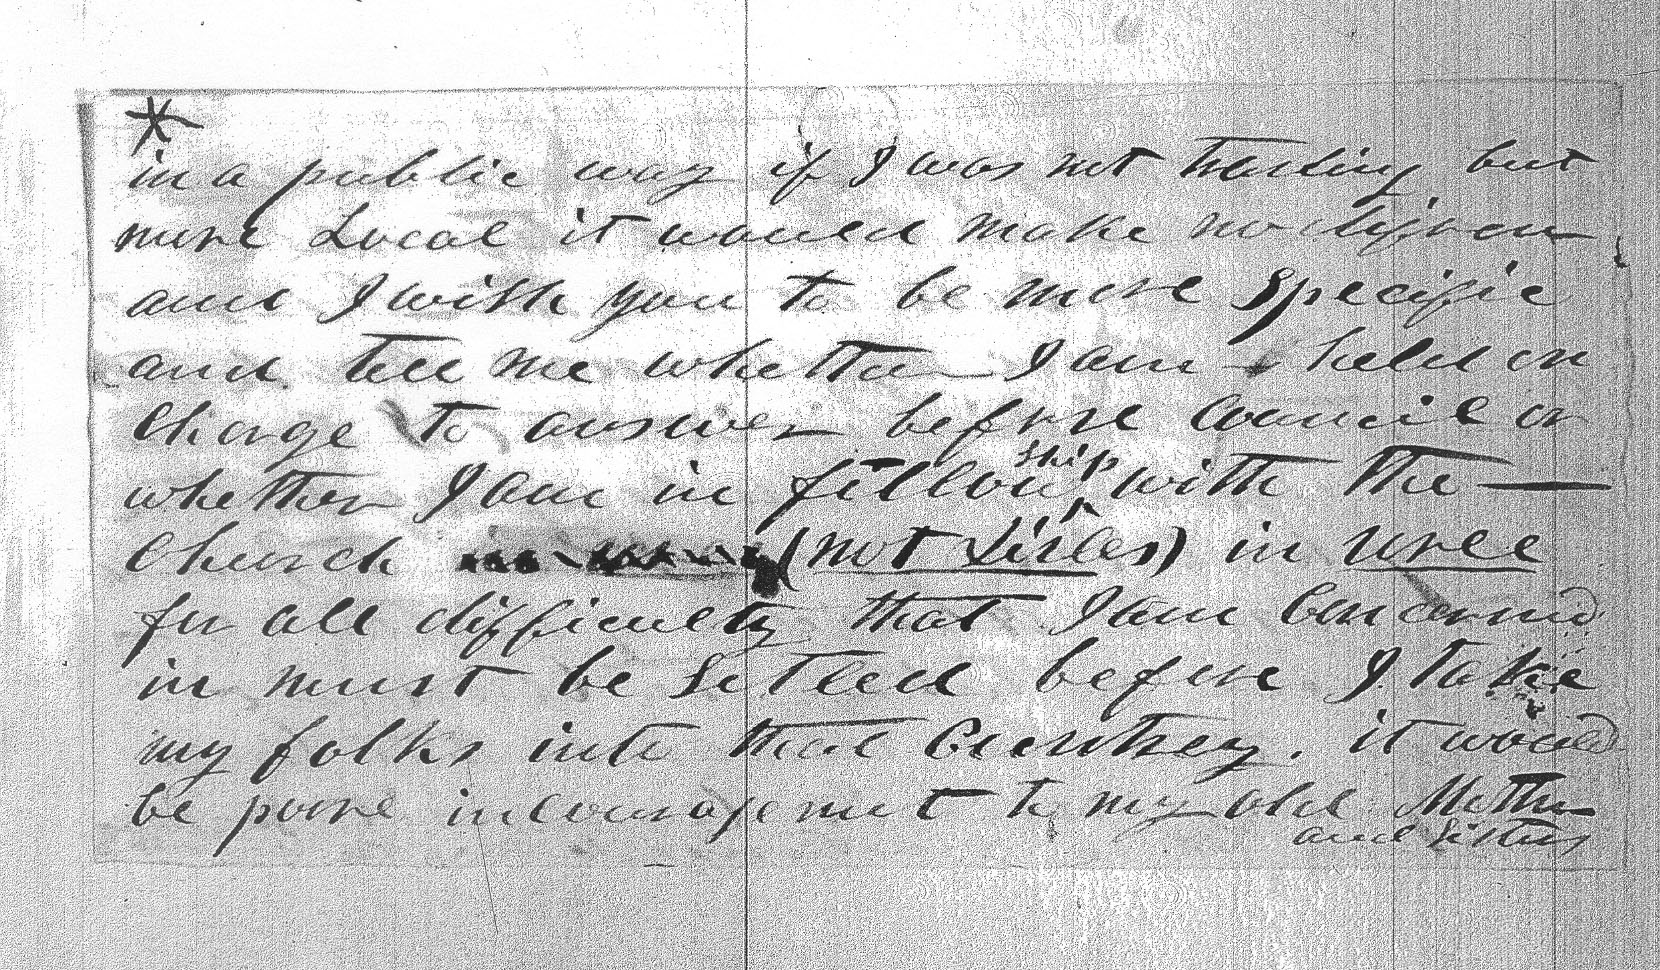 *
in a public way if I was not trailing but
more Local it would make no
and I wish you to be more Specific
and tell me whether I am held on
Charge to answer before Council or
whether I am in fellowship with the —
Church (not Sixles) in
for all difficulty that I am Concerned
in must be Settled before I take
my folks into that Country. it would
be poore incouragement to my old Mother
and Sisters